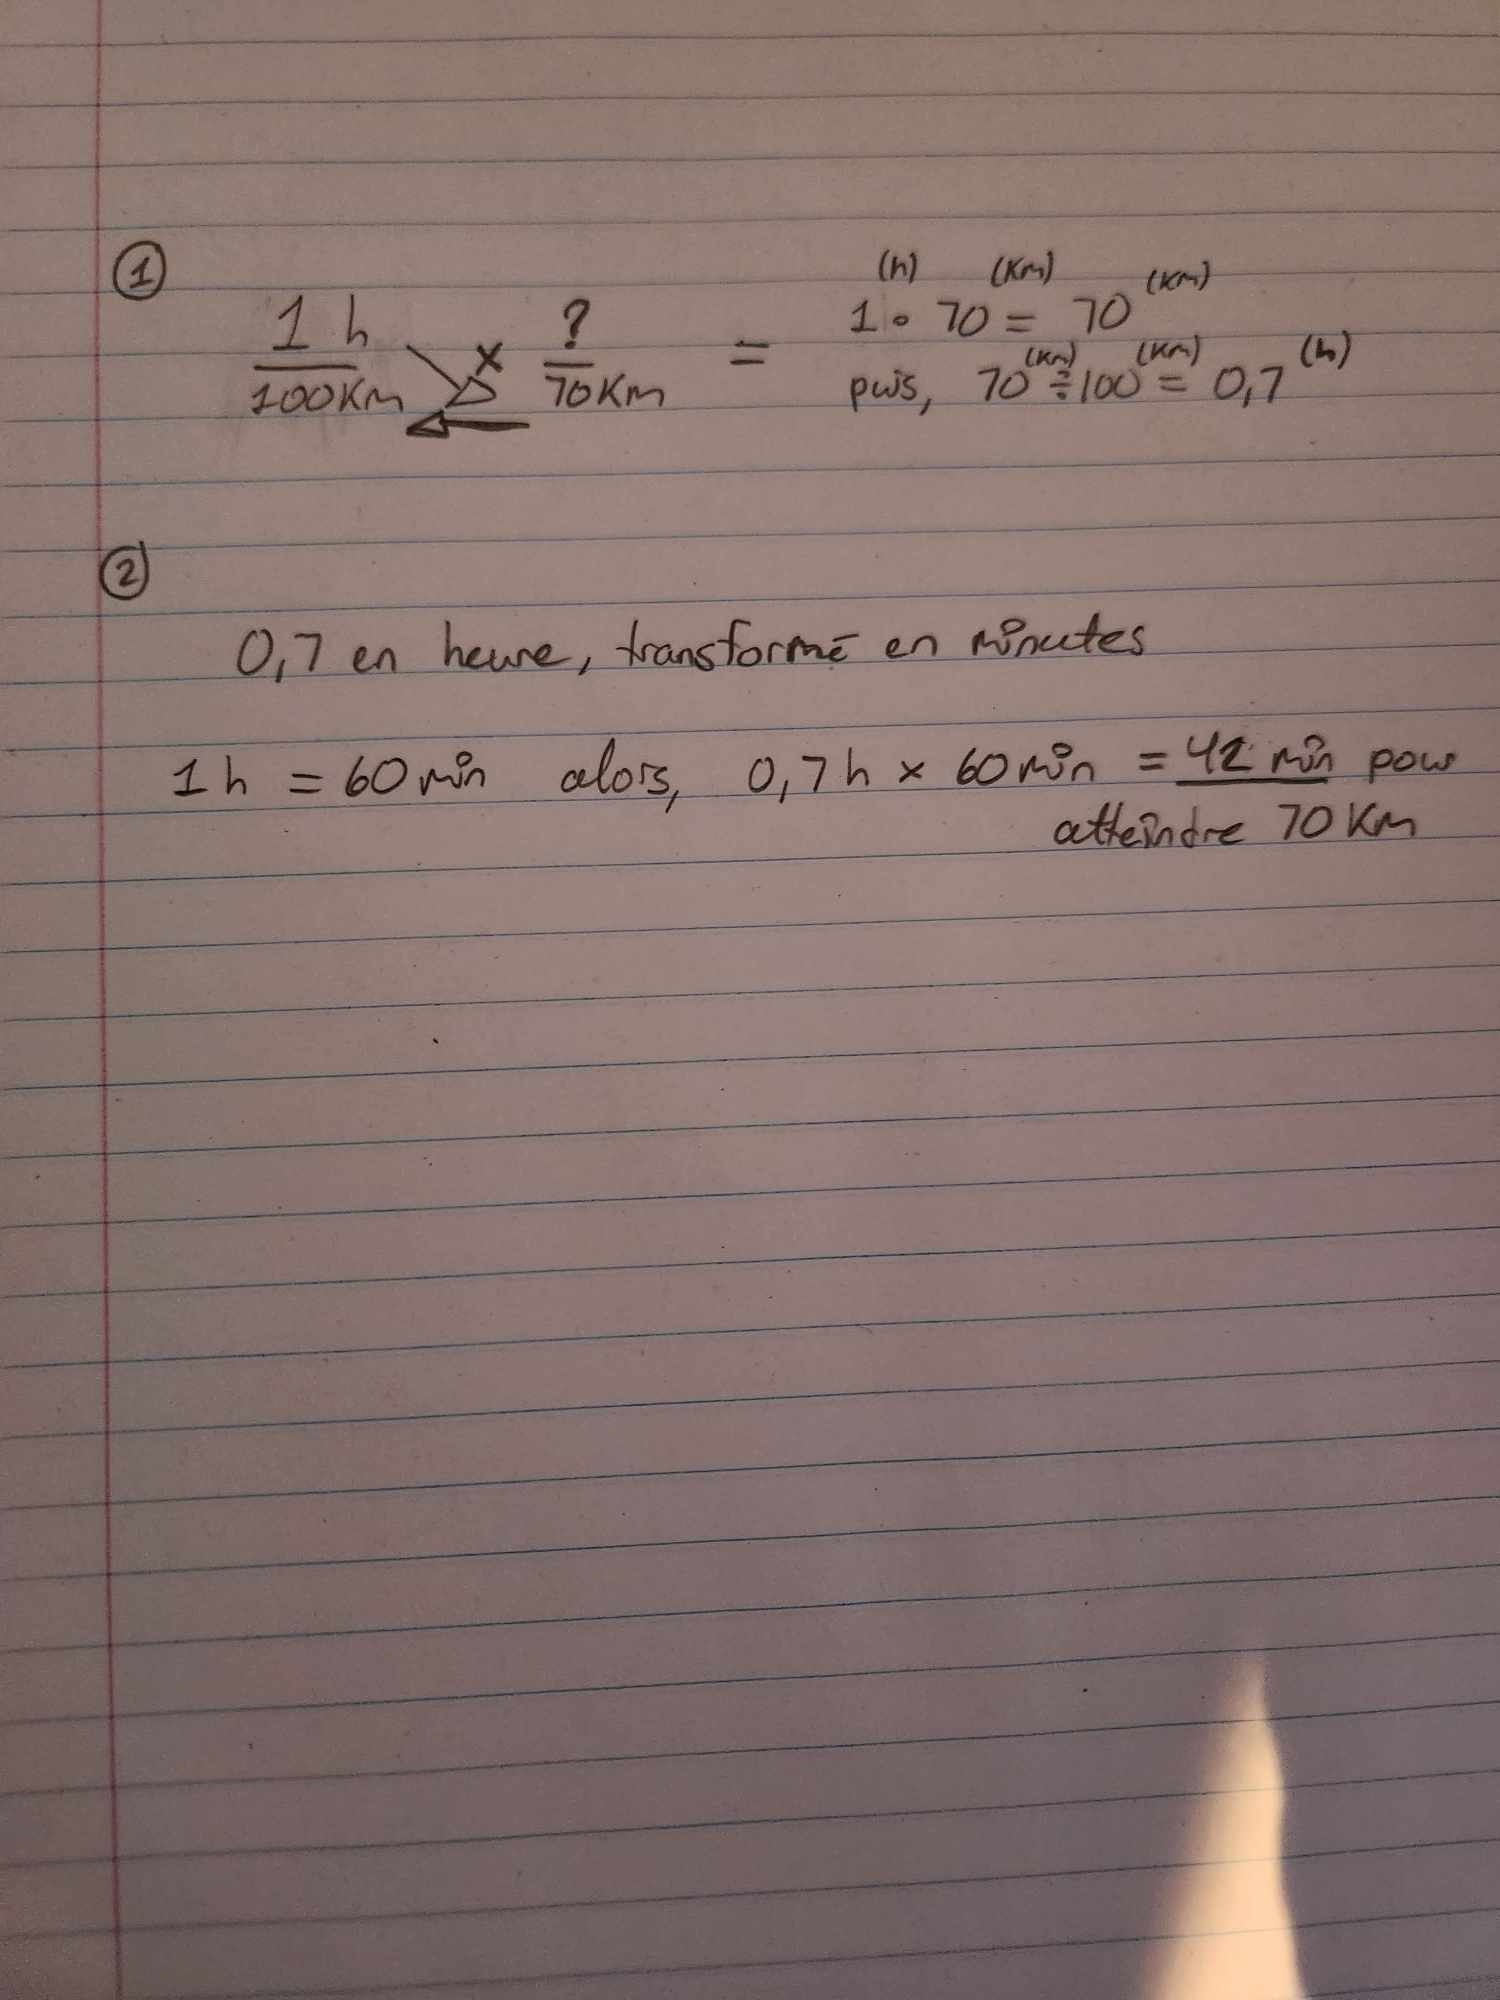 ①
(h) (Km) (Km)
1 h / 100 Km × ? / 70 Km = 1 • 70 = 70
(Km) (Km) (h)
puis, 70 ÷ 100 = 0,7
②
0,7 en heure, transformé en minutes
1 h = 60 min alors, 0,7 h × 60 min = 42 min pour
atteindre 70 Km